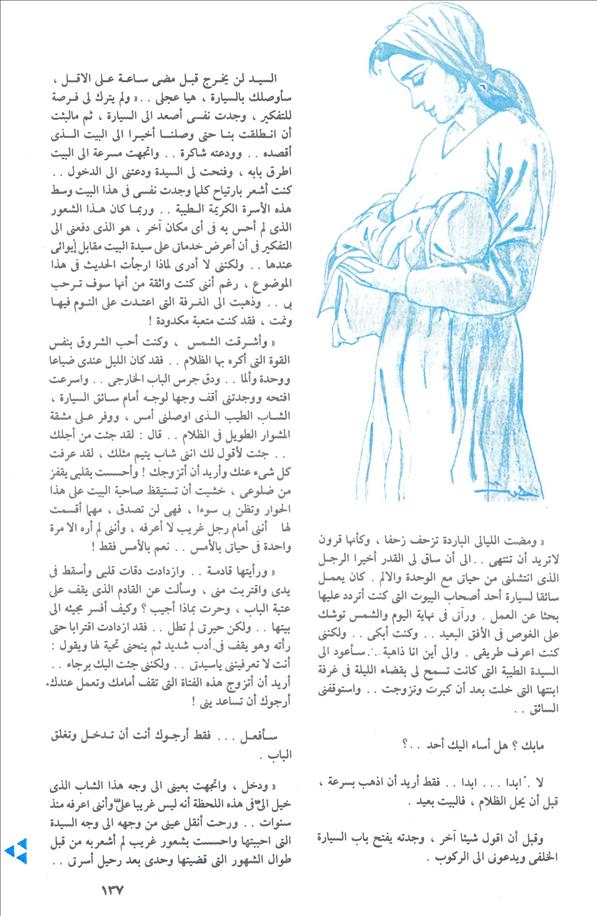 « ومضت الليالى الباردة تزحف زحفا ، وكأنها قرون
لاتريد أن تنتهى . . الى أن ساق لى القدر أخيرا الرجل
الذى انتشلنى من حياتى مع الوحدة والالم . كان يعمل
سائقا لسيارة لسيارة أحد أصحاب البيوت التى كنت أتردد عليها
بحثا عن العمل . ورآنى فى نهاية اليوم والشمس توشك
على الغوص فى الأفق البعيد . . وكنت أبكى . . ولكننى
كنت اعرف طريقى . والى أين انا ذاهبة . . سأعود الى
السيدة الطيبة التى كانت تسمح لى بقضاء الليلة فى غرفة
ابنتها التى خلت بعد أن كبرت وتزوجت . . واستوقفنى
السائق . .
مابك ؟ هل أساء اليك أحد . . ؟
لا . ابدا . . . ابدا . . فقط أريد أن اذهب بسرعة ،
قبل أن يحل الظلام ، فالبيت بعيد .
وقبل أن اقول شيئا آخر ، وجدته يفتح باب السيارة
الخلفى ويدعونى الى الركوب .
السيد لن يخرج قبل مضى ساعة على الاقل ،
سأوصلك بالسيارة ، هيا عجلى . . » ولم يترك لى فرصة
للتفكير ، وجدت نفسى أصعد الى السيارة ، ثم مالبثت
أن انطلقت بنا حتى وصلنا أخيرا الى البيت الذى
أقصده . . وودعته شاكرة . . واتجهت مسرعة الى البيت
اطرق بابه ، وفتحت لى السيدة ودعتنى الى الدخول . .
كنت أشعر بارتياح كلما وجدت نفسى فى هذا البيت وسط
هذه الأسرة الكريمة الطيبة . . وربما كان هذا الشعور
الذى لم أحس به فى أى مكان آخر ، هو الذى دفعنى الى
التفكير فى أن أعرض خدماتى على سيدة البيت مقابل إيوائى
عندها . . ولكننى لا أدرى لماذا ارجأت الحديث فى هذا
الموضوع ، رغم أننى كنت واثقة من أنها سوف ترحب
بى . . وذهبت الى الغرفة التى اعتدت على النوم فيها
ونمت ، فقد كنت متعبة مكدودة !
« وأشرقت الشمس ، وكنت أحب الشروق بنفس
القوة التى أكره بها الظلام . . فقد كان الليل عندى ضياعا
ووحدة وألما . . ودق جرس الباب الخارجى . . واسرعت
افتحه ووجدتنى أقف وجها لوجه أمام سائق السيارة ،
الشاب الطيب الذى اوصلنى أمس ، ووفر على مشقة
المشوار الطويل فى الظلام . . قال : لقد جئت من أجلك
. . جئت لأقول لك اننى شاب يتيم مثلك ، لقد عرفت
كل شىء عنك وأريد أن أتزوجك ! وأحسست بقلبى يقفز
من ضلوعى ، خشيت أن تستيقظ صاحبة البيت على هذا
الحوار وتظن بى سوءا ، فهى لن تصدق ، مهما أقسمت
لها أننى أمام رجل غريب لا أعرفه ، وأننى لم أره الا مرة
واحدة فى حياتى بالأمس . . نعم بالأمس فقط !
« ورأيتها قادمة . . وازدادت دقات قلبى وأسقط فى
يدى واقتربت منى ، وسألت عن القادم الذى يقف على
عتبة الباب ، وحرت بماذا أجيب ؟ وكيف أفسر مجيئه الى
بيتها . . ولكن حيرتى لم تطل . . فقد ازدادت اقترابا حتى
رأته وهو يقف فى أدب شديد ثم ينحنى تحية لها ويقول :
أنت لا تعرفيننى ياسيدتى . . ولكننى جئت اليك برجاء . .
أريد أن أتزوج هذه الفتاة التى تقف أمامك وتعمل عندك.
أرجوك أن تساعد ينى !
سأفعل . . . فقط أرجوك أنت أن تدخل وتغلق
الباب .
« ودخل ، واتجهت بعينى الى وجه هذا الشاب الذى
خيل الى فى هذه اللحظة أنه ليس غريبا على وأننى اعرفه منذ
سنوات . . ورحت أنقل عينى من وجهه الى وجه السيدة
التى احببتها واحسست بشعور غريب لم أشعر به من قبل
طوال الشهور التى قضيتها وحدى بعد رحيل أسرتى . .
١٣٧